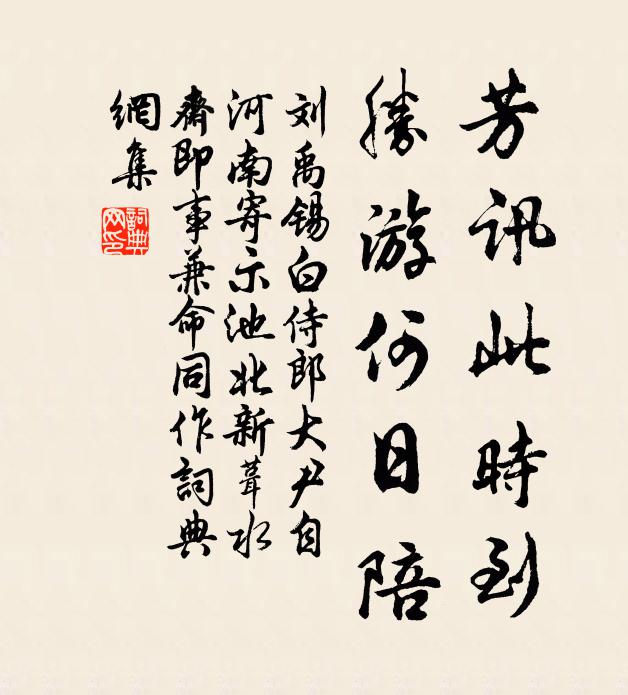 芳訊此時到
勝游何日陪
刘禹锡白侍郎大尹自
河南寄示池北新葺水
齋即事兼命同作詞典
網集
詞典
网印